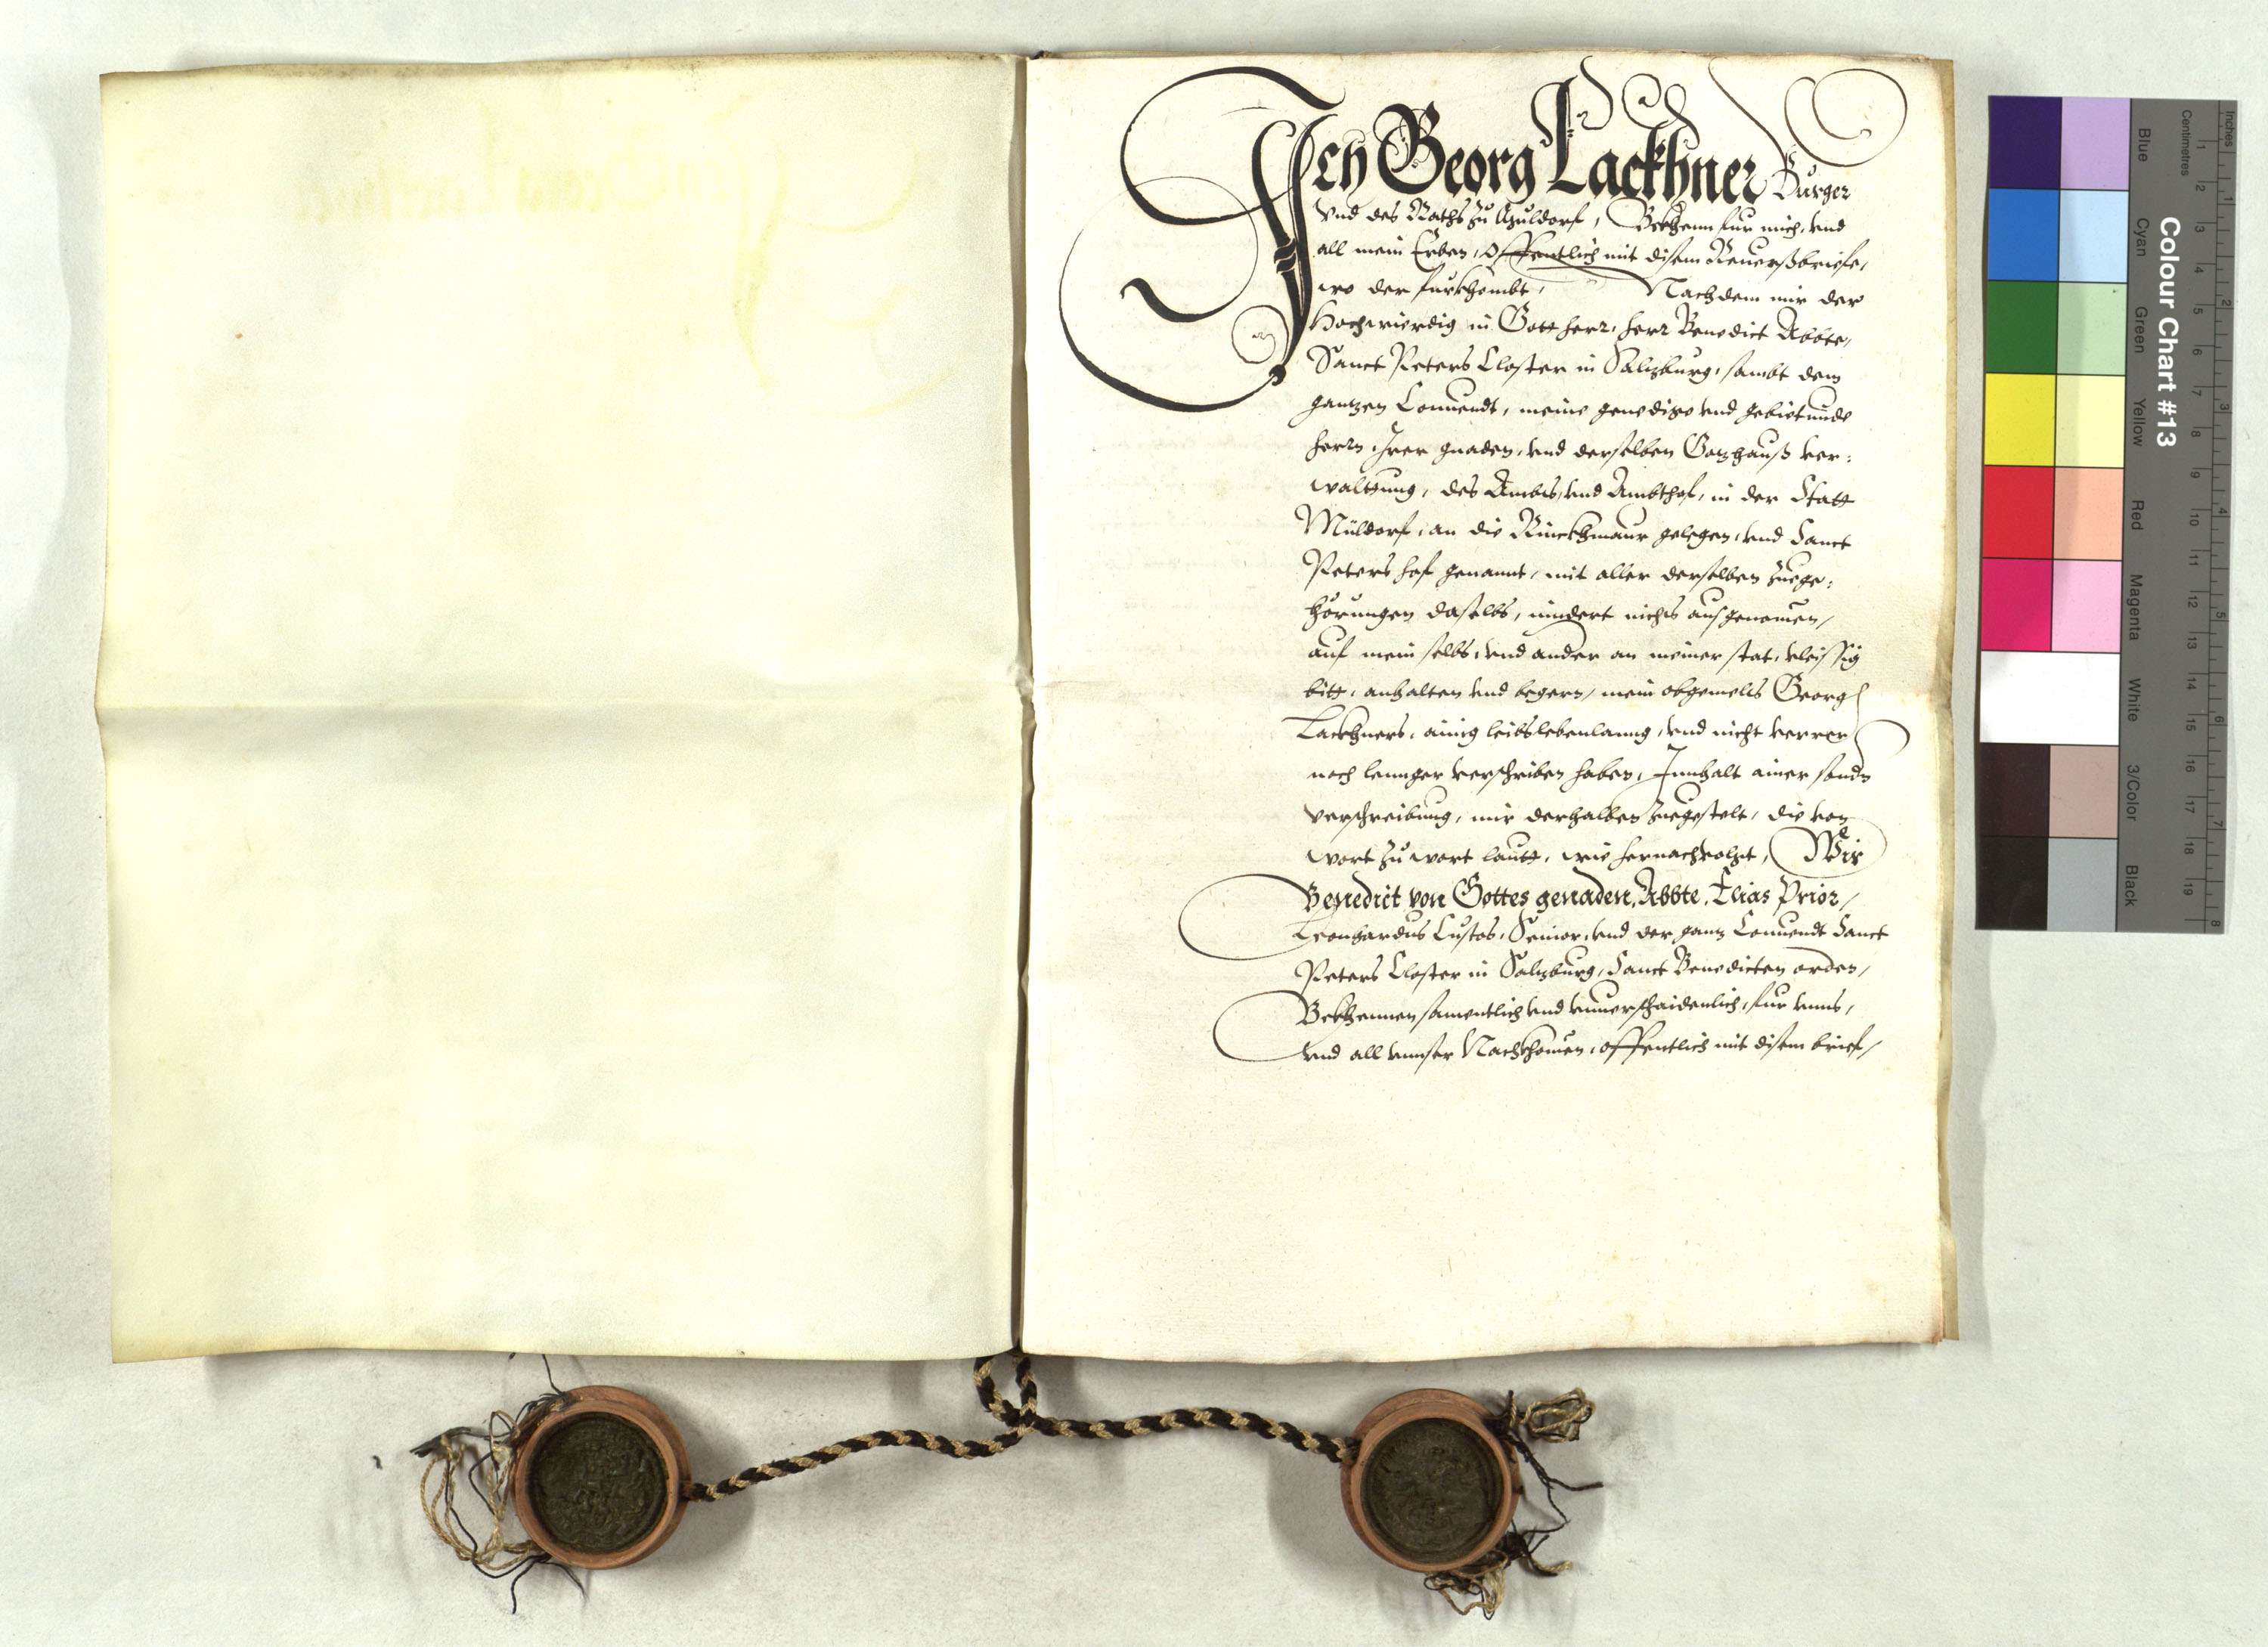 Ich Georg Lackhner Burger
vnd des Raths zu Müldorf, Bekhenn fur mich, vnd
all mein Erben, offentlich mit disem Reuerßbriefe,
wo der furkhombt, Nachdem mir der
Hochwierdig in Gott herr, herr Benedict Abbte,
Sanct Peters Closter in Salzburg, sambt dem
ganzen Conuendt, meine genedige vnd gebietunde
herrn, Irer gnaden, vnd derselben Gotzhauß ver:
waltung, des Ambts, vnd Ambthof, in der Statt
Müldorf, an die Rinckhmaur gelegen, vnd Sanct
Peters hof genannt, mit aller derselben zuege:
hörungen daselbs, nindert nichts ausgenomen,
auf mein selbs, vnd ander an meiner stat, vleissig
bitt, anhalten vnd begern, mein obgemelts Georg
Lackhners, ainig leibslebenlanng, vnd nicht verrer
noch lennger verschriben haben, Innhalt ainer sondn
verschreibung, mir derhalben zuegestelt, die von
wort zu wort lautt, wie hernachvolgt, Wir
Benedict von Gottes genaden, Abbte, Elias Prior,
Leonhardus Custos, Senior, vnd der ganz Conuendt Sanct
Peters Closter in Salzburg, Sanct Benedicten orden,
Bekhennen samentlich vnd vnuerschaidenlich, fur vnns,
vnd all vnnser Nachkhomen, offentlich mit disem brief,
Colour Chart #13
Blue
Cyan
Green
Yellow
Red
Magenta
White
3/Color
Black
Inches
1
2
3
4
5
6
7
8
Centimetres
1
2
3
4
5
6
7
8
9
10
11
12
13
14
15
16
17
18
19